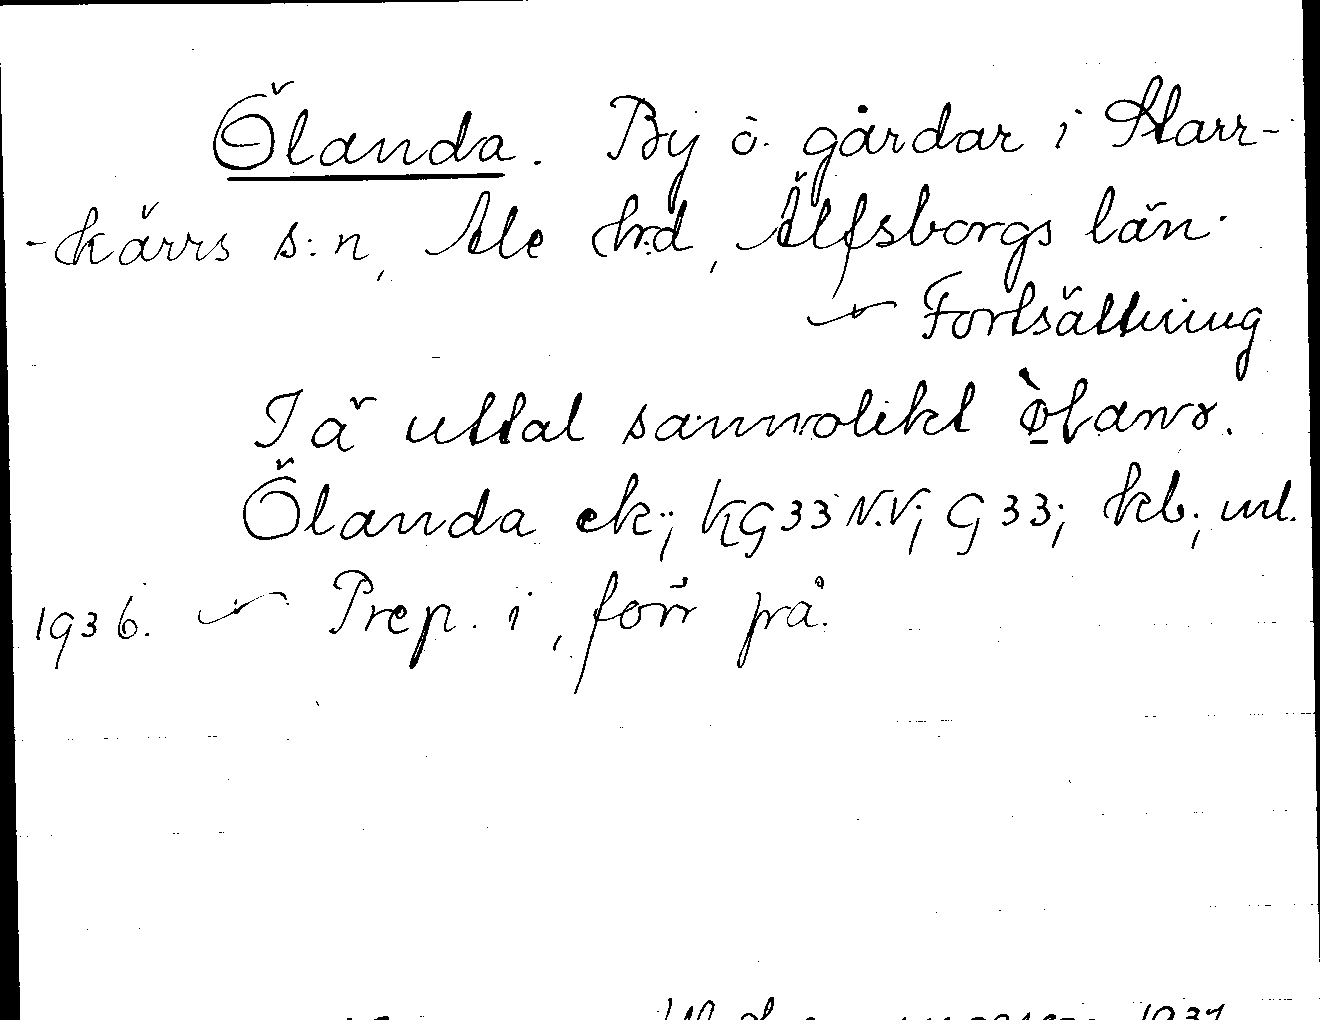 Ölanda. By o. gårdar i Starr-
-kärrs s:n, Ale hrd, Älfsborgs län.
~ Fortsättning
I ä uttal sannolikt
Ölanda ek; KG33 N.V; G 33; kb; ml.
1936. ~ Prep. i, förr på.
1937